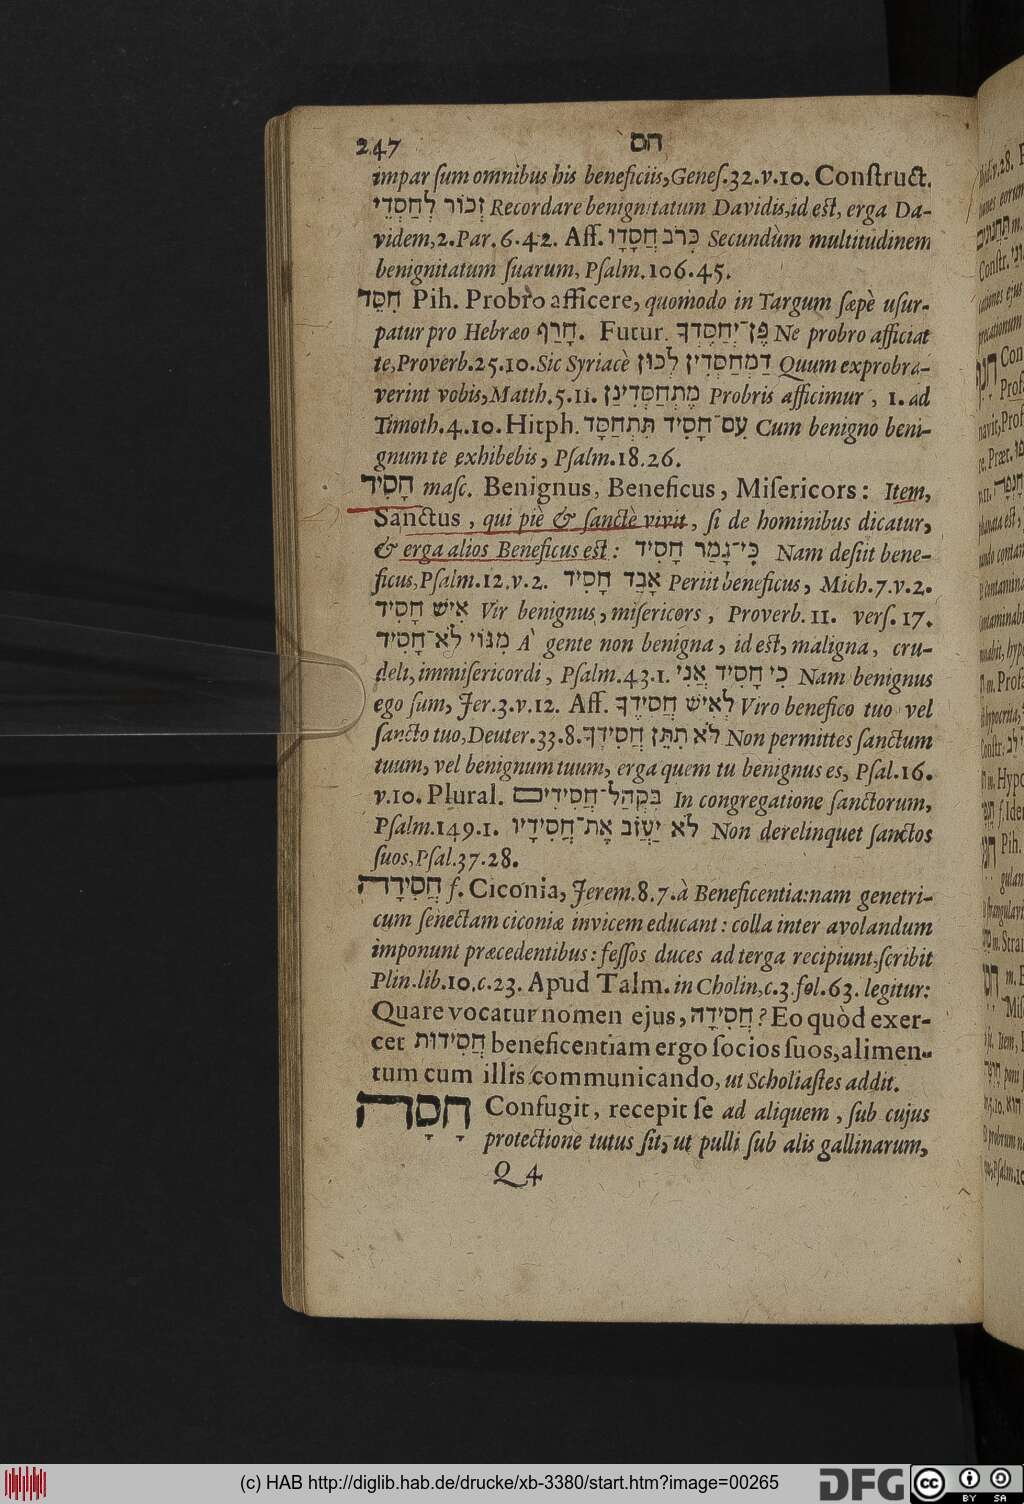 247 חס
impar ſum omnibus his beneficiis, Geneſ. 32. v. 10. Conſtruct.
זְכוֹר לְחַסְדֵי Recordare benignitatum Davidis, id eſt, erga Da-
videm, 2. Par. 6. 42. Aff. כְּרֹב חֲסָדָו Secundùm multitudinem
benignitatum ſuarum, Pſalm. 106. 45.
חִסֵּד Pih. Probro afficere, quomodo in Targum ſæpè uſur-
patur pro Hebræo חָרַף. Futur. פֶּן־יְחַסֶּדְךָ Ne probro afficiat
te, Proverb. 25. 10. Sic Syriacè דַּמְחַסְּדִין לְכוּן Quum exprobra-
verint vobis, Matth. 5. 11. מֶתְחַסְּדִינַן Probris afficimur, 1. ad
Timoth. 4. 10. Hitph. עִם־חָסִיד תִּתְחַסָּד Cum benigno beni-
gnum te exhibebis, Pſalm. 18. 26.
חָסִיד maſc. Benignus, Beneficus, Miſericors: Item,
Sanctus, qui piè & ſanctè vivit, ſi de hominibus dicatur,
& erga alios Beneficus eſt: כִּי־גָמַר חָסִיד Nam deſiit bene-
ficus, Pſalm. 12. v. 2. אָבַד חָסִיד Periit beneficus, Mich. 7. v. 2.
אִישׁ חָסִיד Vir benignus, miſericors, Proverb. 11. verſ. 17.
מִגּוֹי לֹא־חָסִיד A' gente non benigna, id eſt, maligna, cru-
deli, immiſericordi, Pſalm. 43. 1. כִּי חָסִיד אֲנִי Nam benignus
ego ſum, Jer. 3. v. 12. Aff. לְאִישׁ חֲסִידֶךָ Viro benefico tuo vel
ſancto tuo, Deuter. 33. 8. לֹא תִתֵּן חֲסִידְךָ Non permittes ſanctum
tuum, vel benignum tuum, erga quem tu benignus es, Pſal. 16.
v. 10. Plural. בִּקְהַל־חֲסִידִים In congregatione ſanctorum,
Pſalm. 149. 1. לֹא יַעֲזֹב אֶת־חֲסִידָיו Non derelinquet ſanctos
ſuos, Pſal. 37. 28.
חֲסִידָה f. Ciconia, Jerem. 8. 7. à Beneficentia: nam genetri-
cum ſenectam ciconiæ invicem educant: colla inter avolandum
imponunt præcedentibus: feſſos duces ad terga recipiunt, ſcribit
Plin. lib. 10. c. 23. Apud Talm. in Cholin, c. 3. fol. 63. legitur:
Quare vocatur nomen ejus, חֲסִידָה? Eo quòd exer-
cet חֲסִידוּת beneficentiam ergo ſocios ſuos, alimen-
tum cum illis communicando, ut Scholiaſtes addit.
חָסָה Confugit, recepit ſe ad aliquem, ſub cujus
protectione tutus ſit, ut pulli ſub alis gallinarum,
Q 4
(c) HAB http://diglib.hab.de/drucke/xb-3380/start.htm?image=00265
DFG
cc BY SA